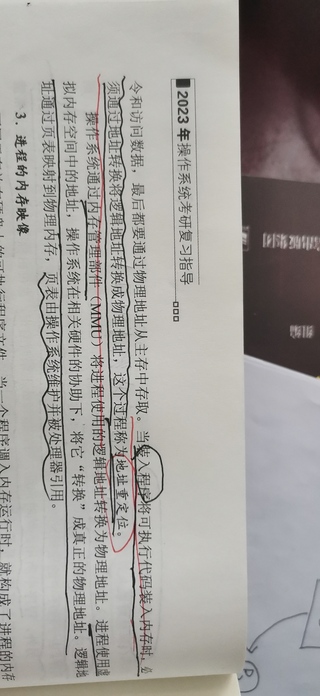 2023年操作系统考研复习指导
令和访问数据，最后都要通过物理地址从主存中存取。当装入程序将可执行代码装入内存时，必
须通过地址转换将逻辑地址转换成物理地址，这个过程称为地址重定位。
操作系统通过内存管理部件（MMU）将进程使用的逻辑地址转换为物理地址。进程使用虚
拟内存空间中的地址，操作系统在相关硬件的协助下，将它“转换”成真正的物理地址。逻辑地
址通过页表映射到物理内存，页表由操作系统维护并被处理器引用。
3. 进程的内存映像
当一个程序调入内存运行时，就构成了进程的内存